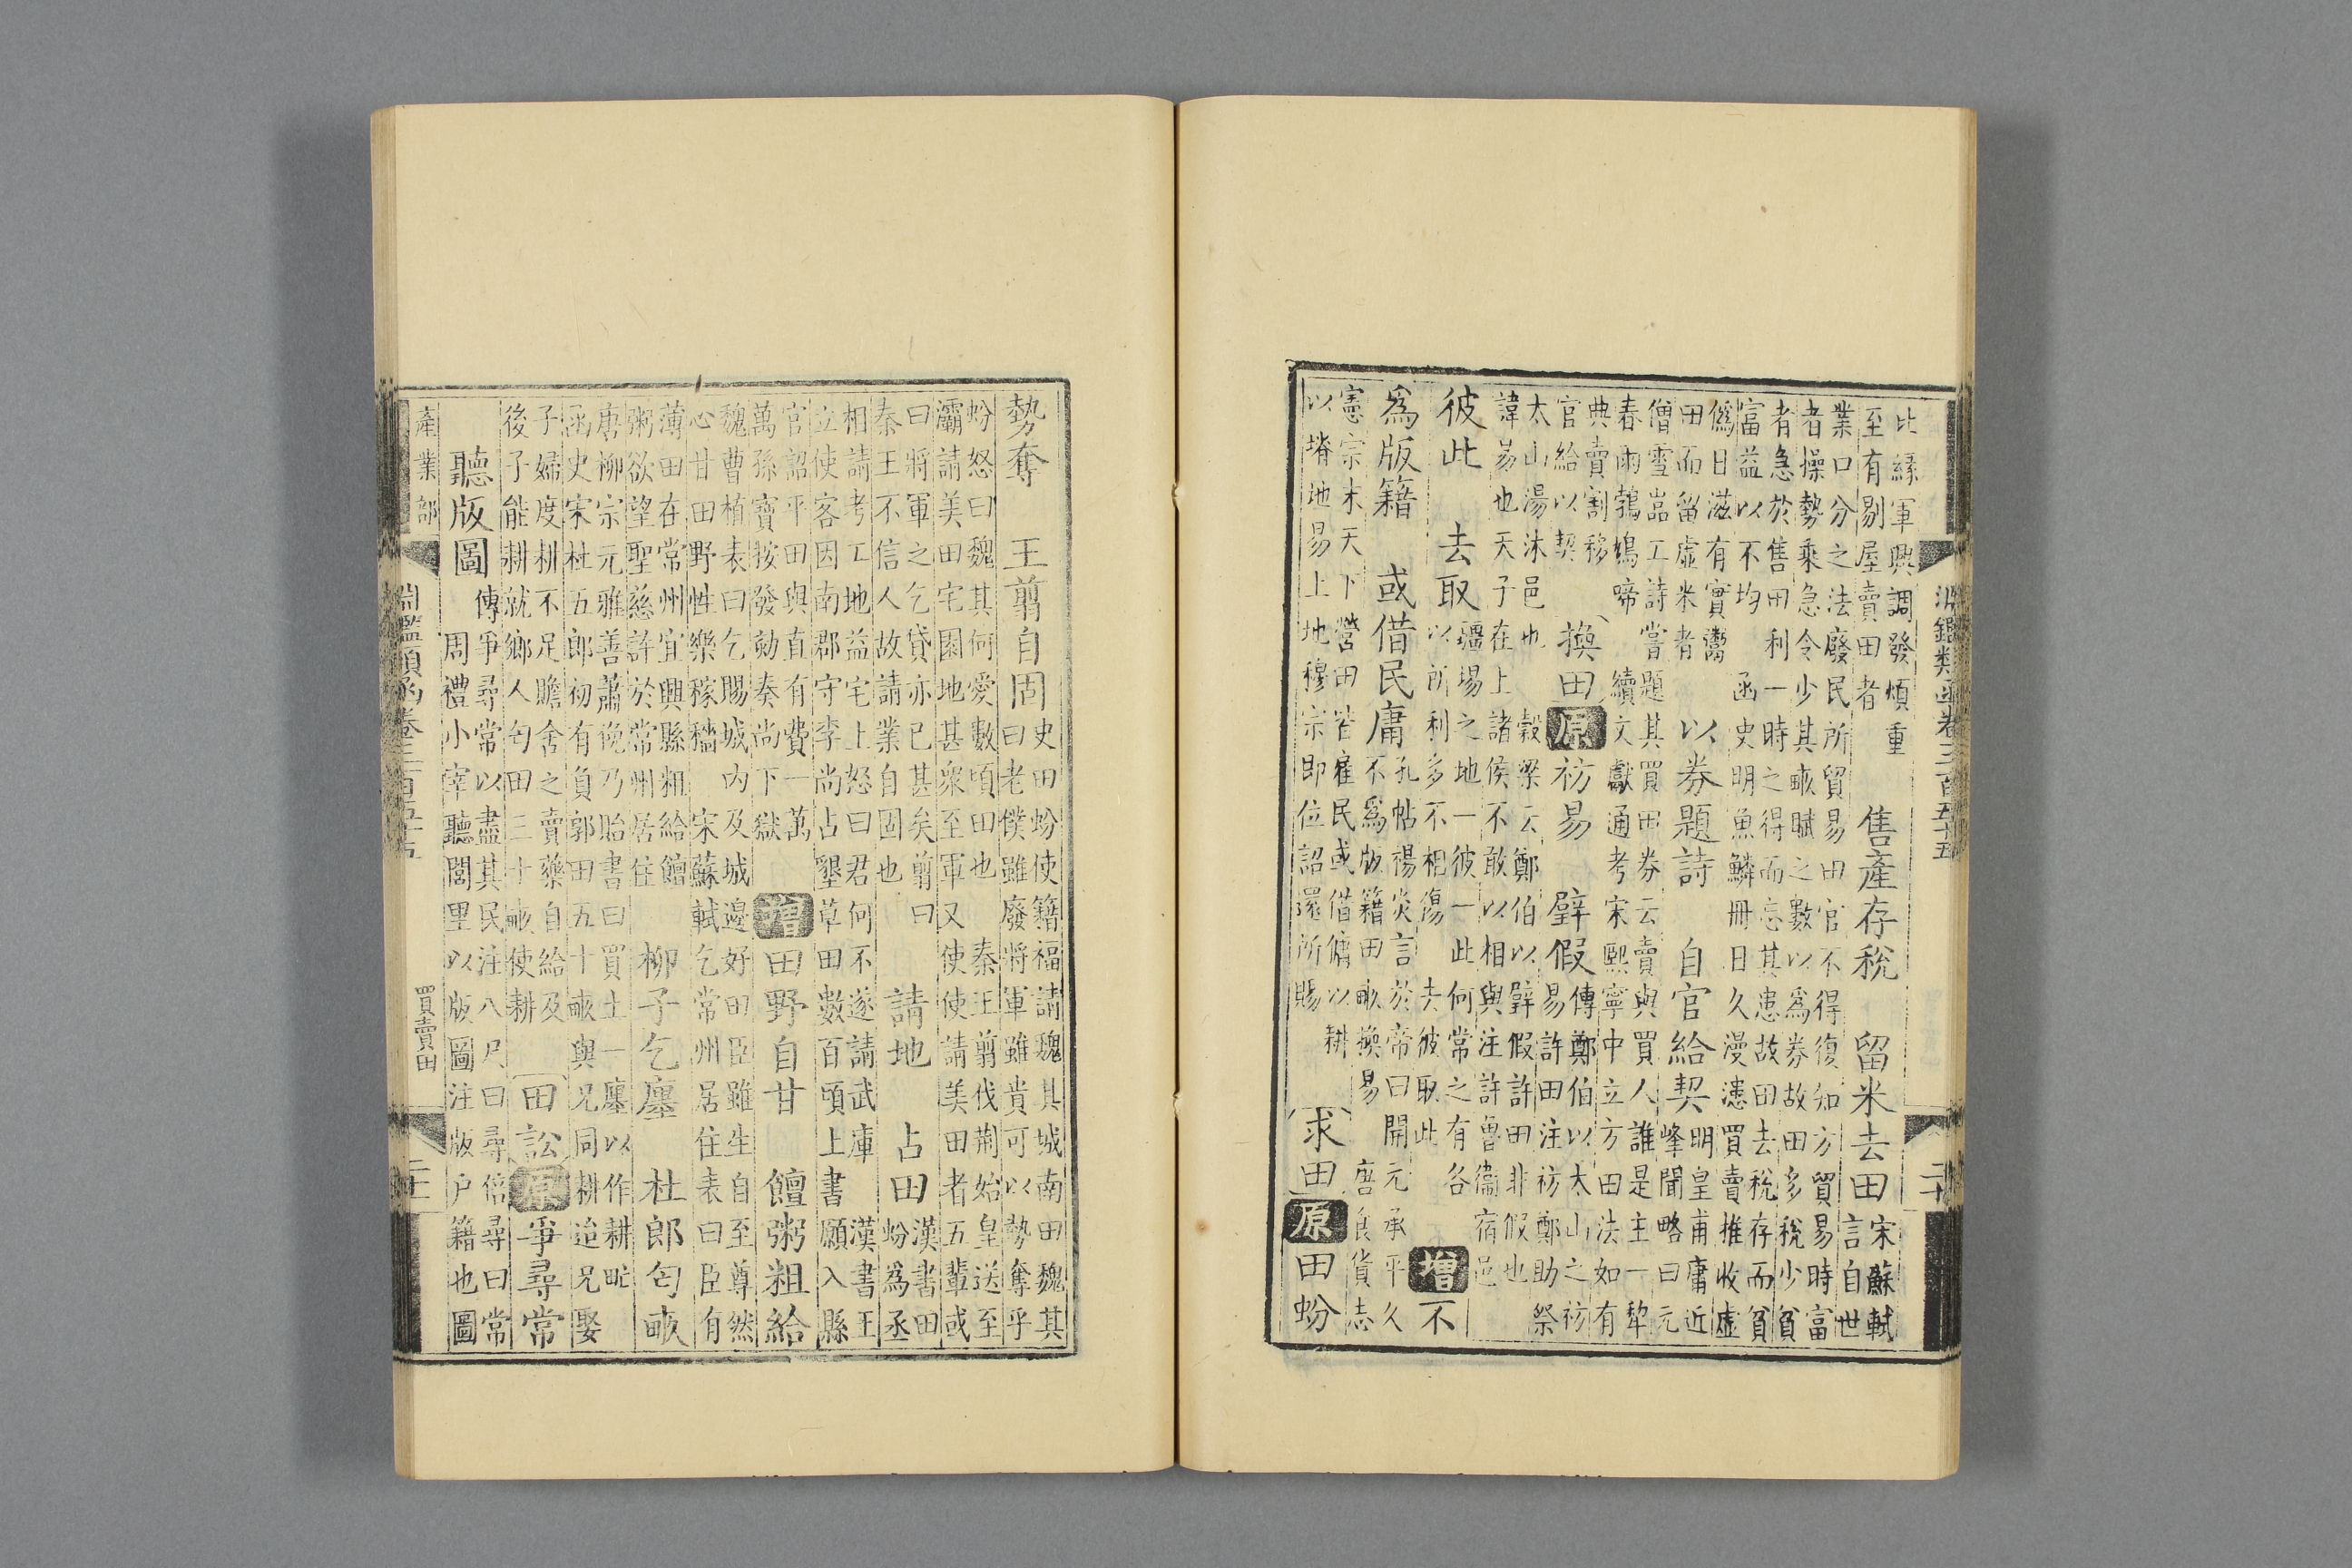 淵鑑類函卷三百五十五 二十
比緣軍興調發煩重
至有剔屋賣田者
售產存稅 留米去田
宋蘇軾
言自世
業口分之法廢民所貿易田官不得復知方貿易時富
者操勢乘急令少其畝賦之數以爲券故田多稅少貧
者急於售田利一時之得而忘其患故田去稅存而貧
富益以不均 函史明魚鱗冊日久漫漶買賣推收虛
僞日滋有實鬻
田而留虛米者
以券題詩 自官給契
明皇甫庸近
峰聞略曰元
僧雪嵓工詩嘗題其買田券云賣與買人誰是主一犂
春雨鵓鳩啼 續文獻通考宋熙寧中立方田法如有
典賣割移
官給以契
換田 原 祊易 璧假
傳鄭伯以太山之祊
易許田注祊鄭助祭
太山湯沐邑也 穀梁云鄭伯以璧假許田非假也
諱易也天子在上諸侯不敢以相與注許魯衞宿邑
彼此 去取
疆場之地一彼一此何常之有各
以所利多不相傷 去彼取此
增 不
爲版籍 或借民庸
孔帖楊炎言於帝曰開元承平久
不爲版籍田畝換易 唐食貨志
憲宗末天下營田皆雇民或借傭以耕
以塉地易上地穆宗即位詔還所賜
求田 原 田蚡
勢奪 王翦自固
史田蚡使籍福請魏其城南田魏其
曰老僕雖廢將軍雖貴可以勢奪乎
蚡怒曰魏其何愛數頃田也 秦王翦伐荆始皇送至
灞請美田宅園地甚衆至軍又使使請美田者五輩或
曰將軍之乞貸亦已甚矣翦曰
秦王不信人故請業自固也
請地 占田
漢書田
蚡爲丞
相請考工地益宅上怒曰君何不遂請武庫 漢書王
立使客因南郡守李尚占墾草田數百頃上書願入縣
官詔平田與直有費一萬
萬孫寶按發劾奏尚下獄
增 田野自甘 饘粥粗給
魏曹植表曰乞賜城內及城邊好田臣雖生自至尊然
心甘田野性樂稼穡 宋蘇軾乞常州居住表曰臣有
薄田在常州宜興縣粗給饘
粥欲望聖慈許於常州居住
柳子乞廛 杜郎匄畝
唐柳宗元雅善蕭俛乃貽書曰買土一廛以作耕甿
函史宋杜五郎初有負郭田五十畝與兄同耕迨兄娶
子婦度耕不足贍舍之賣藥自給及
後子能耕就鄉人匄田三十畝使耕
田訟 原 爭尋常
聽版圖
傳爭尋常以盡其民注八尺曰尋倍尋曰常
周禮小宰聽閭里以版圖注版户籍也圖
產業部 淵鑑類函卷三百五十五 買賣田 二十一